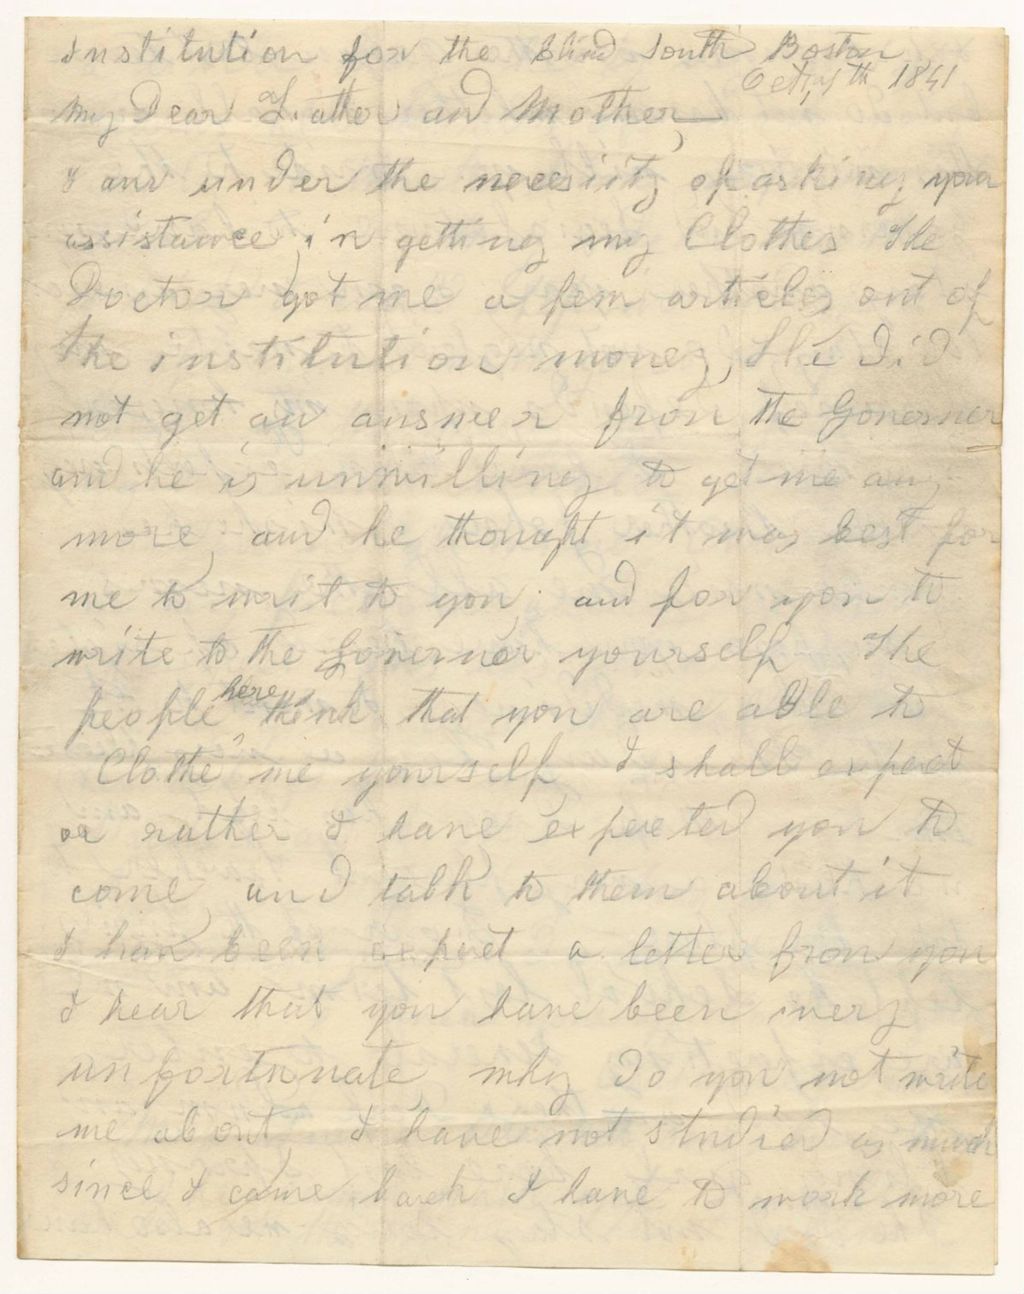 Institution for the blind South Boston
Oct, 7th 1841
My Dear Father and Mother,
I am under the necesiity of asking your
assistance, in getting my Clothes The
Doctor got me a few articles out of
the institution money, The did
not get an answer from the Governer
and he is unwilling to get me any
more, and he thought it was best for
me to writ to you, and for you to
write to the Governor yourself The
people here think that you are able to
Clothe me yourself, I shall expect
or rather I have expected you to
come, and talk to them about it
I have been expect a letter from you
I hear that you have been very
unfortunate, why do you not write
me about, I have not studied as much
since I came back I have to work more